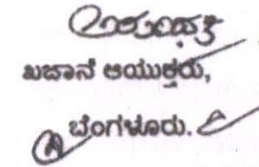 ಖಜಾನೆ ಆಯುಕ್ತರು,
ಬೆಂಗಳೂರು.